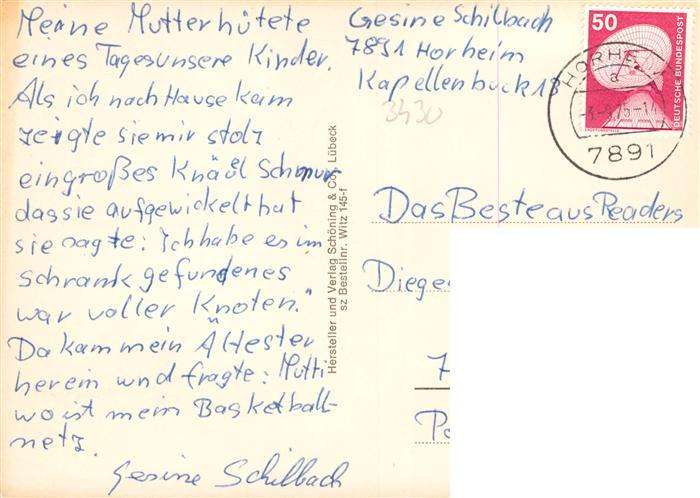 Meine Mutter hütete
eines Tages unsere Kinder.
Als ich nach Hause kam
zeigte sie mir stolz
ein großes Knäuel Schnur
das sie aufgewickelt hat
sie sagte: Ich habe es im
Schrank gefunden es
war voller Knoten."
Da kam mein Ältester
herein und fragte: Mutti
wo ist mein Basketball-
netz.
Gesine Schilbach
Hersteller und Verlag Schöning & Co., Lübeck
sz Bestellnr. Witz 145-f
Gesine Schilbach
7891 Horheim
Kapellenbuck 13
3430
50
DEUTSCHE BUNDESPOST
HORHEIM
a
7891
Das Beste aus Readers
Diege
7
Po